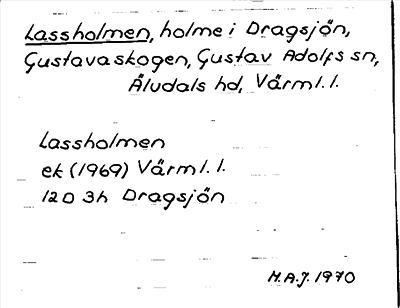 Lassholmen, holme i Dragsjön,
Gustavaskogen, Gustav Adolfs sn,
Älvdals hd, Värml. l.
Lassholmen
ek (1969) Värml. l.
12D 3h Dragsjön
H.A.J. 1970